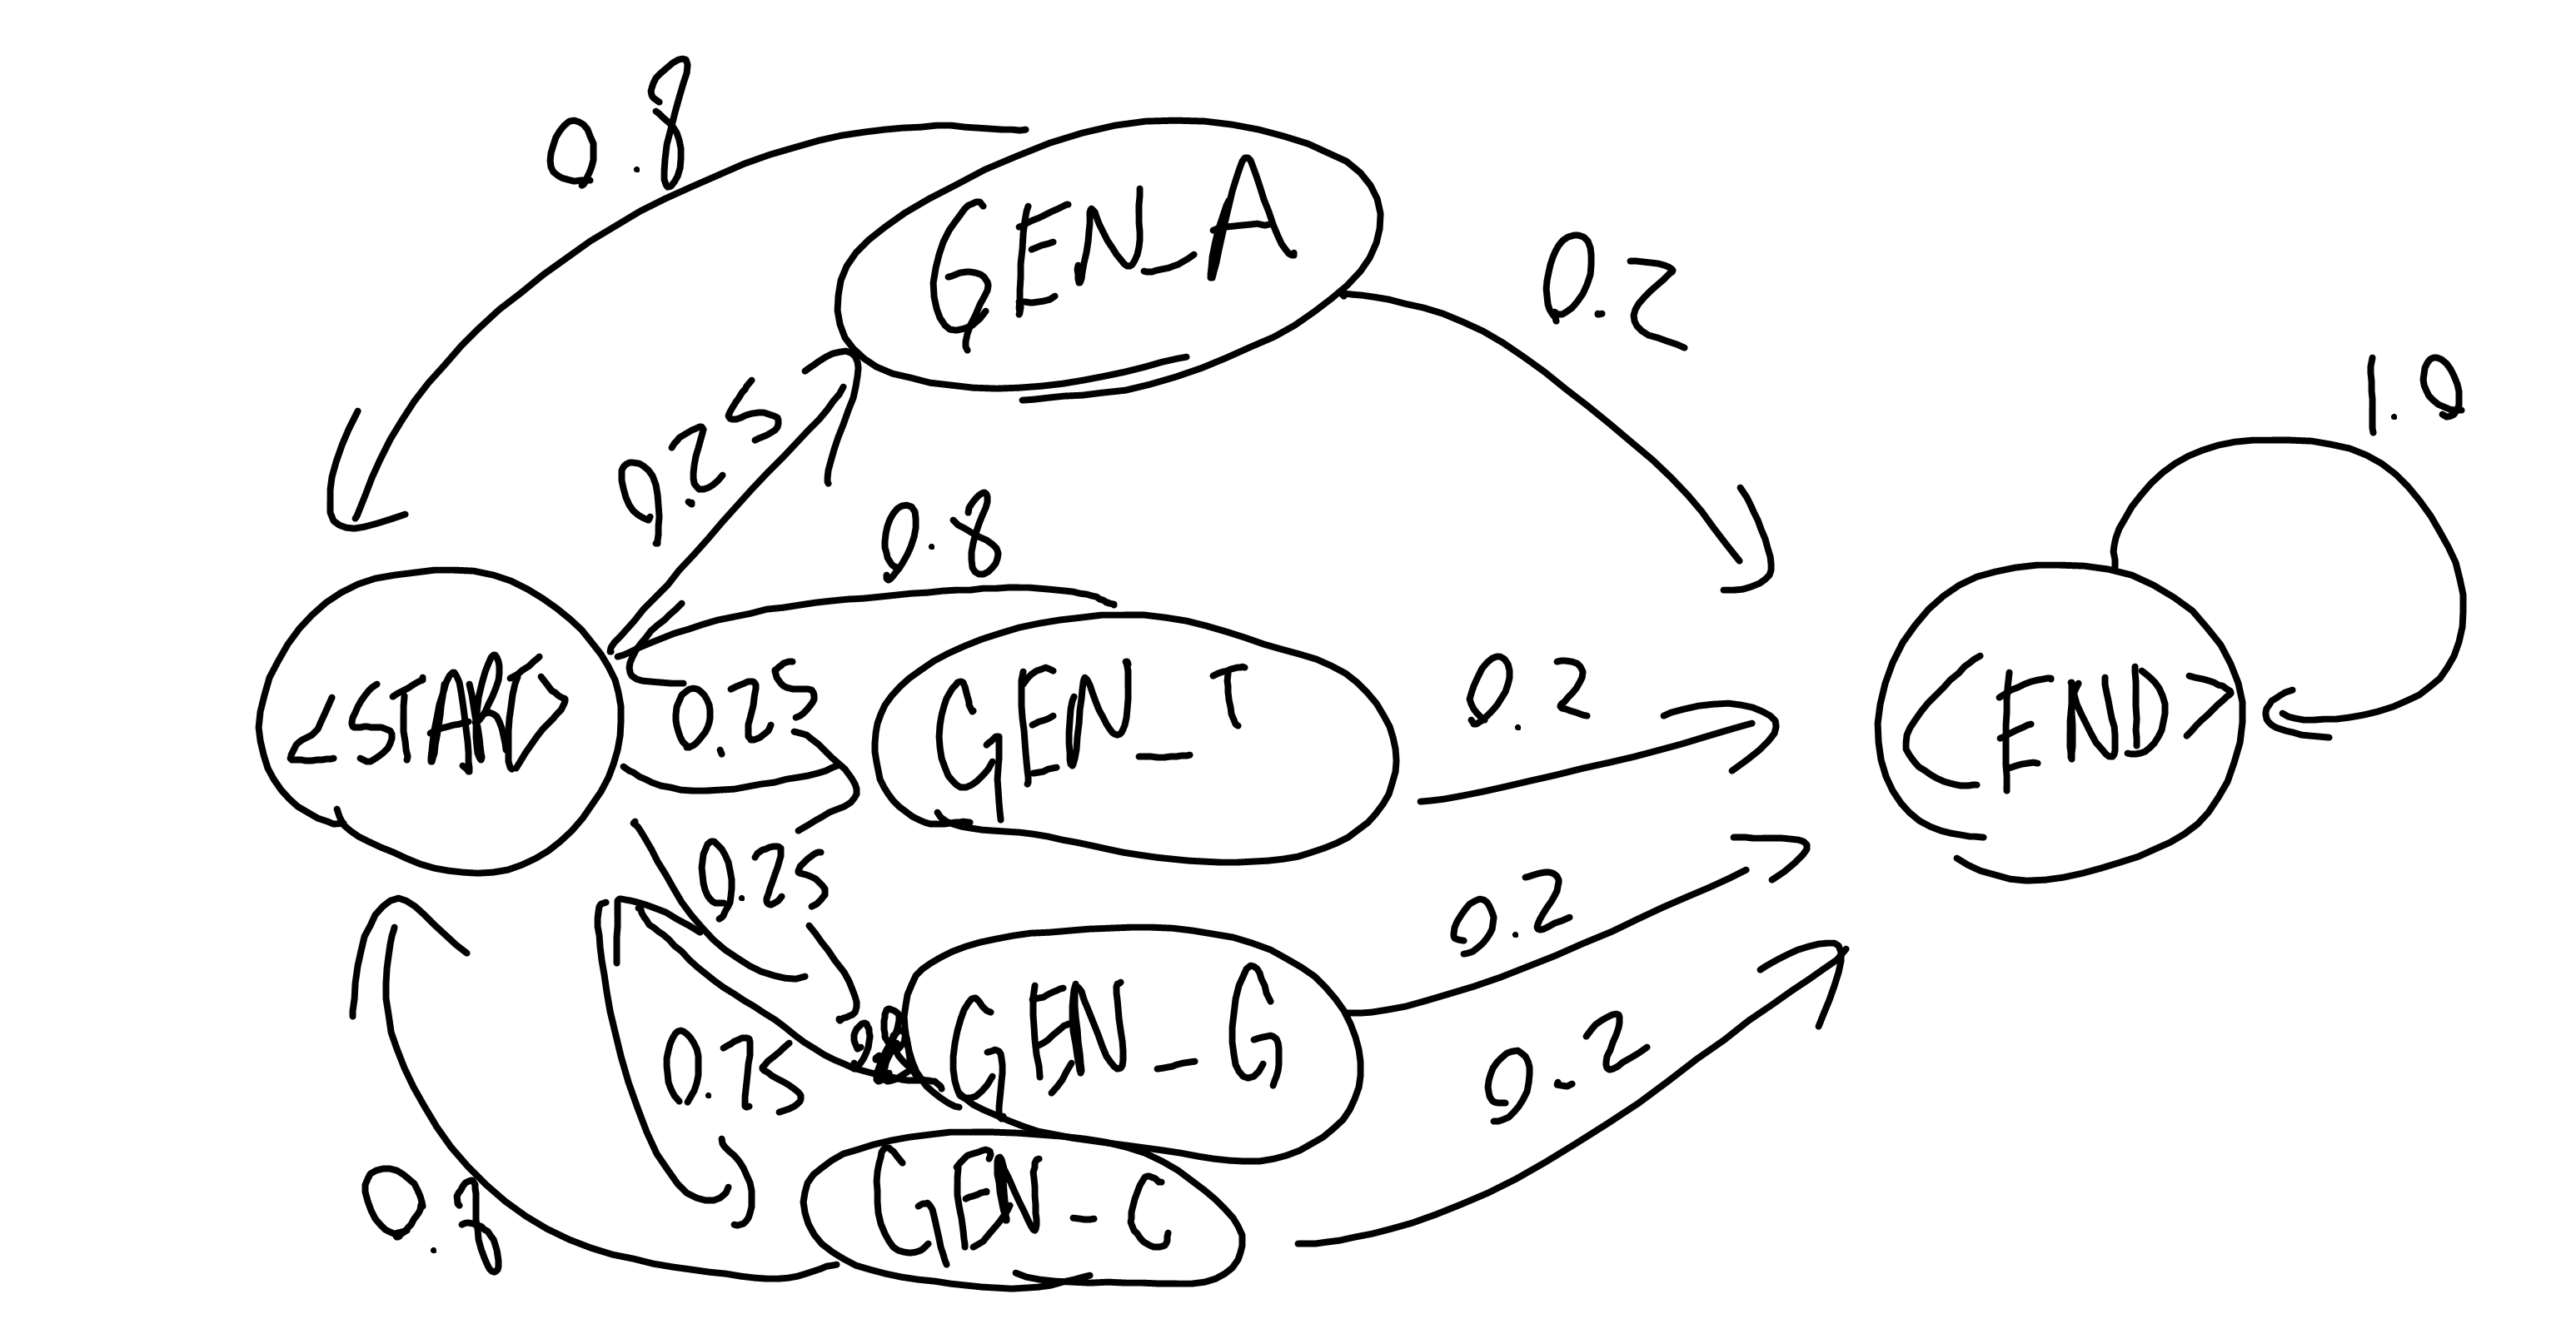 0.8
GEN_A
0.2
1.0
0.25
0.8
<START>
0.25
GEN_T
0.2
<END>
0.25
0.2
GEN_G
0.25
0.2
0.8
GEN_C